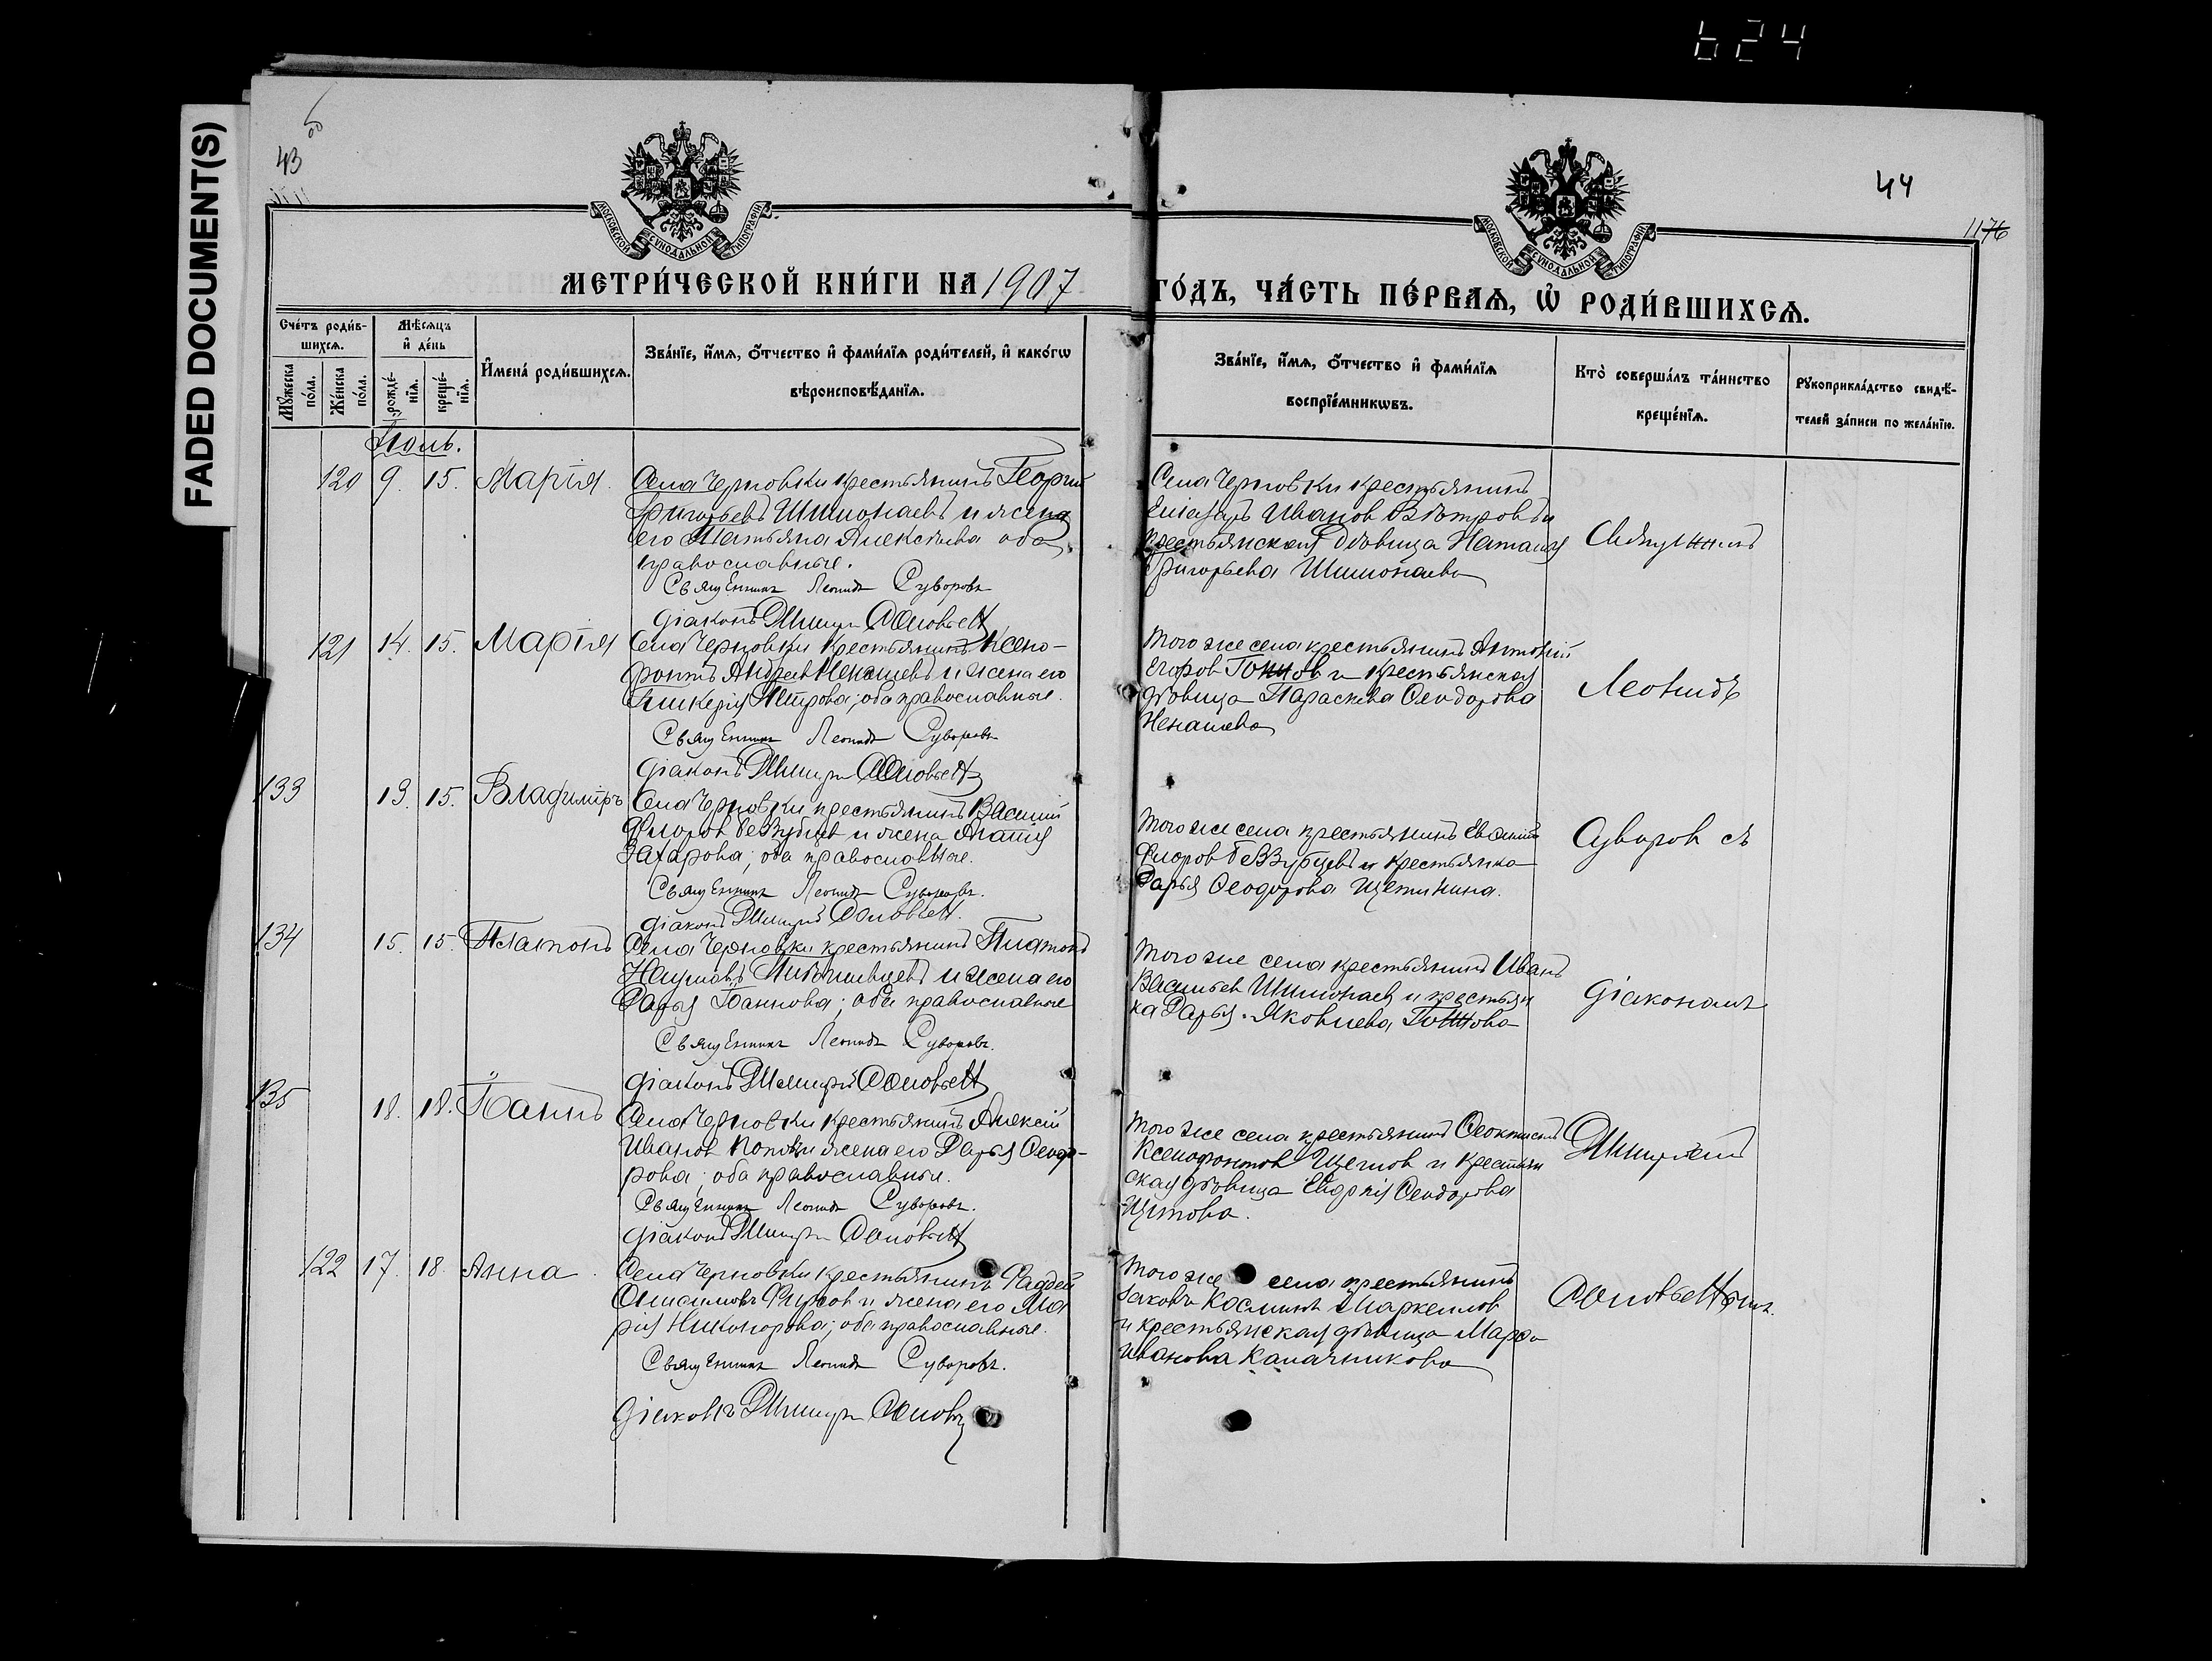 624
FADED DOCUMENT(S)
43
44
1176
МОСКОВСКОЙ СѴНОДАЛЬНОЙ ТИПОГРАФІИ
МОСКОВСКОЙ СѴНОДАЛЬНОЙ ТИПОГРАФІИ
МЕТРИ́ЧЕСКОЙ КНИ́ГИ НА 1907
ГО́ДЪ, ЧА́СТЬ ПЕ́РВАѦ, Ѡ҆ РОДИ́ВШИХСѦ.
Сче́тъ роди́в-
шихсѧ.
Мѣ́сѧцъ
и҆ де́нь
Мꙋ́жеска
по́ла.
Же́нска
по́ла.
рожде́-
нїѧ.
креще́-
нїѧ.
И҆мена̀ роди́вшихсѧ.
Зва́нїе, и҆́мѧ, ѻ҆́тчество и҆ фами́лїѧ роди́телей, и҆ како́гѡ
вѣроисповѣ́данїѧ.
Зва́нїе, и҆́мѧ, ѻ҆́тчество и҆ фами́лїѧ
воспрїе́мникѡвъ.
Кто̀ соверша́лъ та́инство
креще́нїѧ.
Рꙋкоприкла́дство свидѣ́-
телей за́писи по жела́нїю.
Іюль.
120 9. 15. Марія
Села Черновки крестьянинъ Георгій
Григорьевъ Шишонаевъ и жена
его Татьяна Алексѣева оба
православные.
Священникъ Леонидъ Суворовъ
Діаконъ Димитрій Соловьевъ
Села Черновки крестьянинъ
Иванов и
крестьянская дѣвица Наталія
Григорьева Шишонаева
Священникъ
121 14. 15. Марія
Села Черновки крестьянинъ Ксено-
фонтъ Андреевъ Ненашевъ и жена его
Гликерія Петрова; оба православные.
Священникъ Леонидъ Суворовъ
Діаконъ Димитрій Соловьевъ
Того же села крестьянинъ Антоній
Егоров и крестьянская
дѣвица Параскева Ѳеодорова
Ненашева
Леонидъ
133 13. 15. Владиміръ
Села Черновки крестьянинъ Василій
Флоров Беззубцев и жена Агапія
Захарова; оба православные.
Священникъ Леонидъ Суворовъ.
Діаконъ Димитрій Соловьевъ.
Того же села крестьянинъ
Флоров Беззубцевъ и крестьянка
Дарья Ѳеодорова Щетинина.
Суворов съ
134 15. 15. Платонъ
Села Черновки крестьянинъ Платонъ
Наумовъ и жена его
Дарья Іоаннова; оба православные
Священникъ Леонидъ Суворовъ.
Діаконъ Димитрій Соловьевъ
Того же села крестьянинъ Иванъ
Васильев Шишонаев и крестьян
ка Дарья Яковлева
діакономъ
135 18. 18. Іоаннъ
Села Черновки крестьянинъ Алексій
Иванов Попов и жена его Дарья Ѳеодо-
рова; оба православные.
Священникъ Леонидъ Суворовъ.
Діаконъ Димитрій Соловьевъ
Того же села крестьянинъ Ѳеоктистъ
Ксенофонтов Щеглов и крестьян
ская дѣвица Ѳеодорова
Димитріемъ
122 17. 18. Анна
Села Черновки крестьянинъ Фаддей
Онисимовъ Фирсов и жена его Ма
рія Никонорова; оба православные.
Священникъ Леонидъ Суворовъ.
Діаконъ Димитрій Соловьевъ
Того же села крестьянинъ
Іаковъ Космин Маркелов
и крестьянская дѣвица Марѳа
Иванова Калачникова
Соловьевымъ.